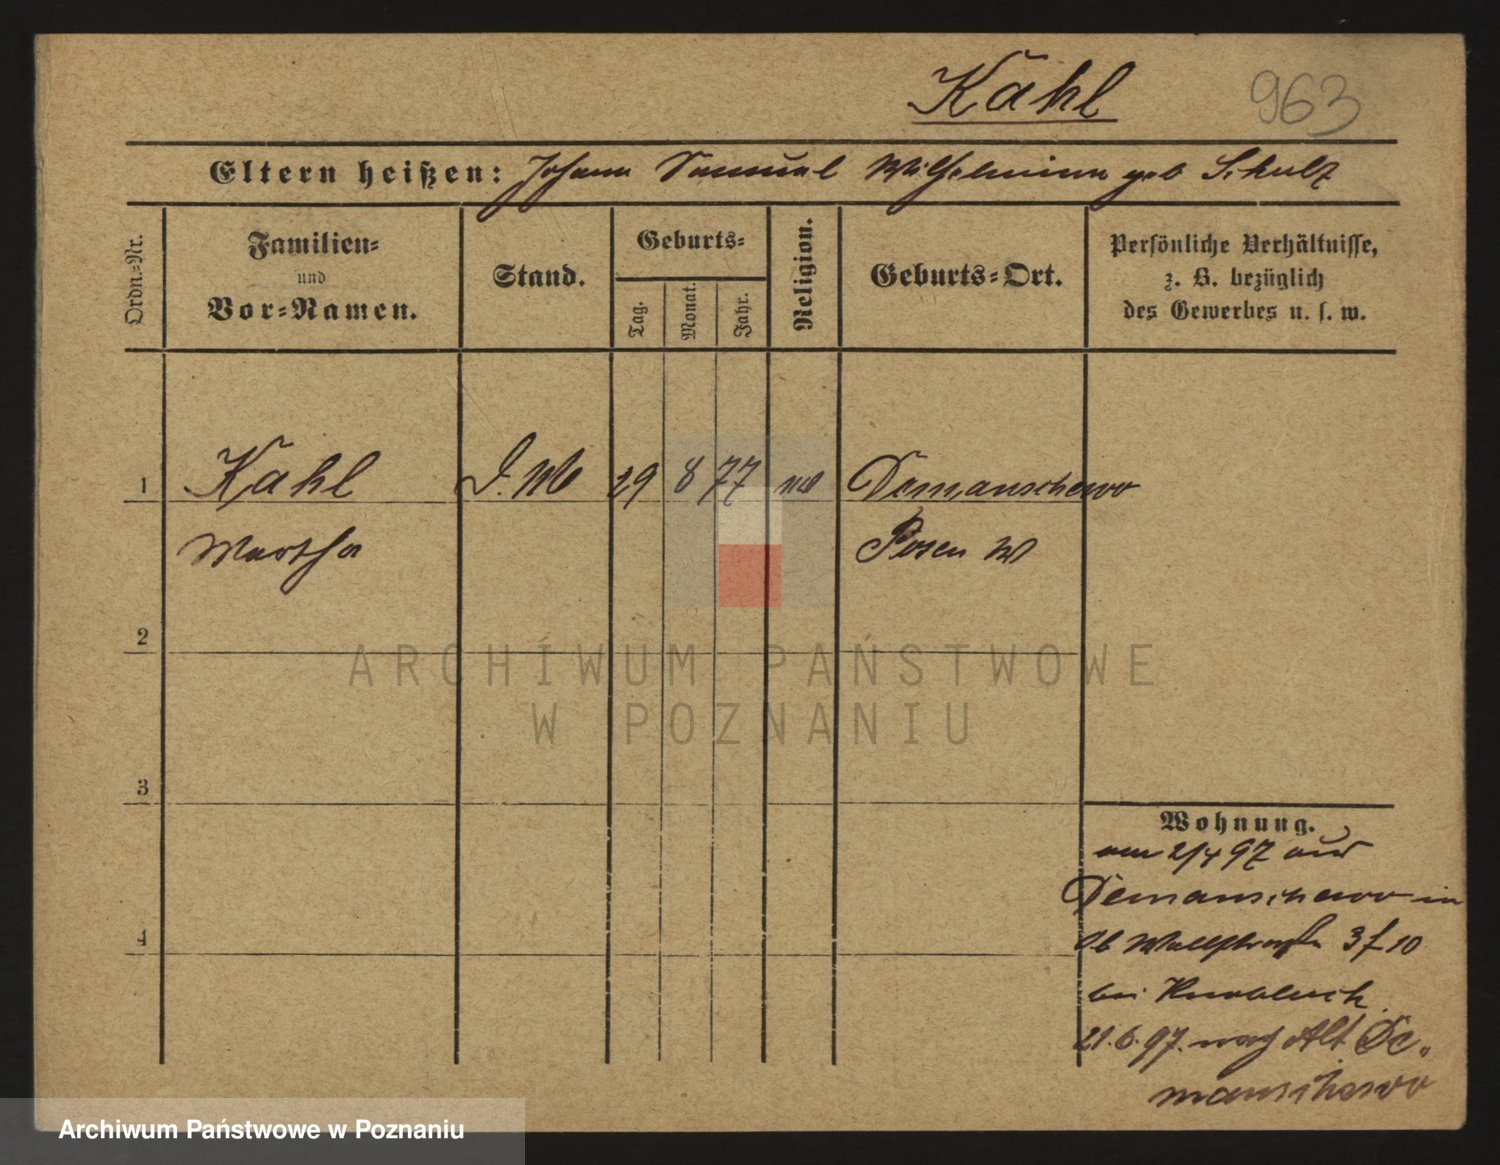 Kahl 963
Eltern heißen: Johann Samuel Wilhelmine geb Schulz
Ordn.-Nr.
Familien-
und
Vor-Namen.
Stand.
Geburts-
Tag.
Monat.
Jahr.
Religion.
Geburts-Ort.
Persönliche Verhältnisse,
z. B. bezüglich
des Gewerbes u. s. w.
1 Kahl D. M 29 8 77 Demanschewo
Martha Posen W
2
3
4
Wohnung.
am 2/4 97 aus
Demanschewo in
Wallstraße 3 f 10
bei Knobloch
21.6.97. nach Alt De-
manschewo
ARCHIWUM PAŃSTWOWE
W POZNANIU
Archiwum Państwowe w Poznaniu